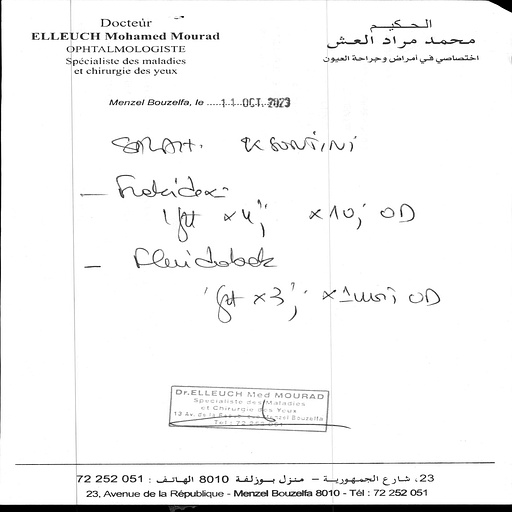 Docteur
ELLEUCH Mohamed Mourad
OPHTALMOLOGISTE
Spécialiste des maladies
et chirurgie des yeux
الحكيم
محمد مراد العش
اختصاصي في أمراض وجراحة العيون
Menzel Bouzelfa, le .....11 OCT. 2023
SARAH. KSONTINI
— Frakidex
1 gtt x 4/j x 10j OD
—
1 gtt x 3/j x 1 mois OD
Dr.ELLEUCH Med MOURAD
Spécialiste des Maladies
et Chirurgie des Yeux
Menzel Bouzelfa
Tel : 72 252 051
23، شارع الجمهورية – منزل بوزلفة 8010 الهاتف : 051 252 72
23, Avenue de la République - Menzel Bouzelfa 8010 - Tél : 72 252 051